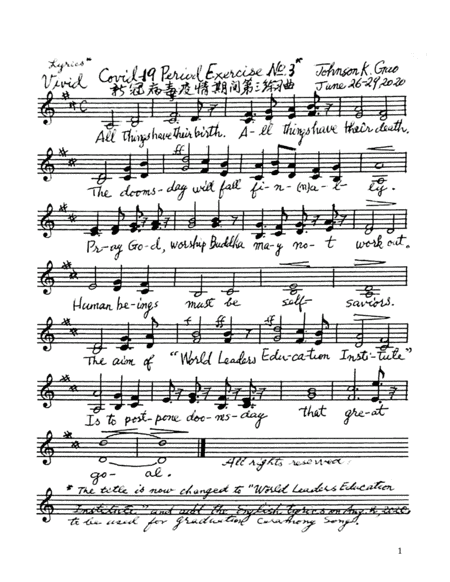 "Lyrics"
Vivid Covid-19 Period Exercise No. 3* Johnson K. Gao
新冠病毒疫情期间第三练习曲 June 26-29, 2020
All things have their birth. A-ll things have their death.
The dooms-day will fall fi-n-(n)a-l-ly.
Pr-ay Go-d, worship Buddha ma-y no-t work out.
Human be-ings must be self-saviors.
The aim of "World Leaders Edu-ca-tion Insti-tute"
Is to post-pone doo-ms-day that gre-at
go-al. All rights reserved.
* The title is now changed to "World Leaders Education
Institute" and add the English lyrics on Aug. 2020
to be used for graduation Song.
1